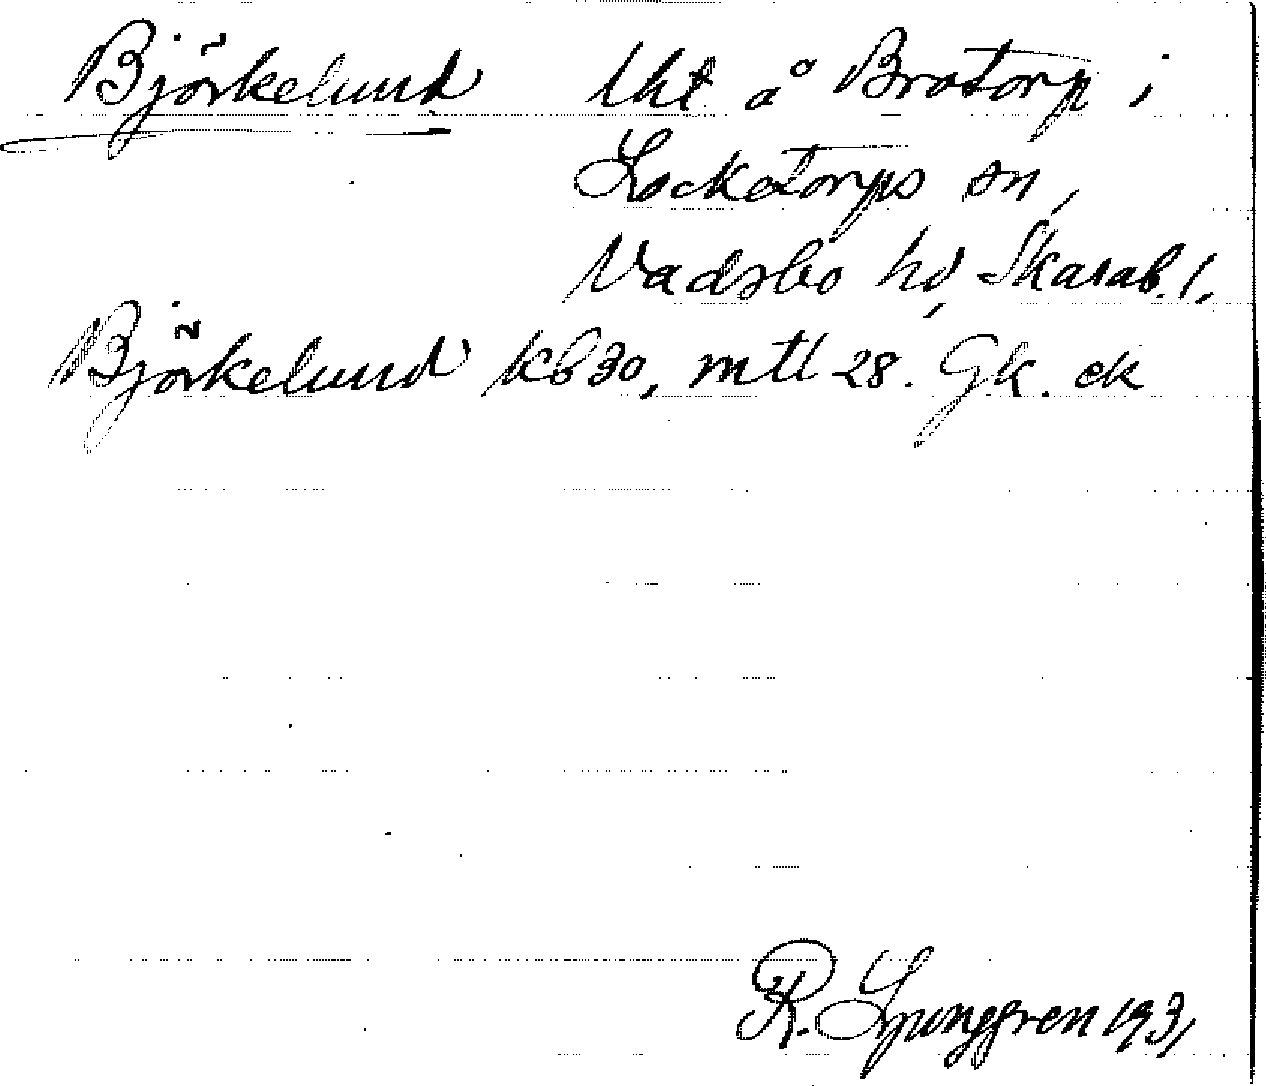 Björkelund Uht å Brotorp i
Locketorps sn,
Vadsbo hd, Skarab. l.
Björkelund kb 30, mtl 28. Gk. ek
R. Ljunggren 1931